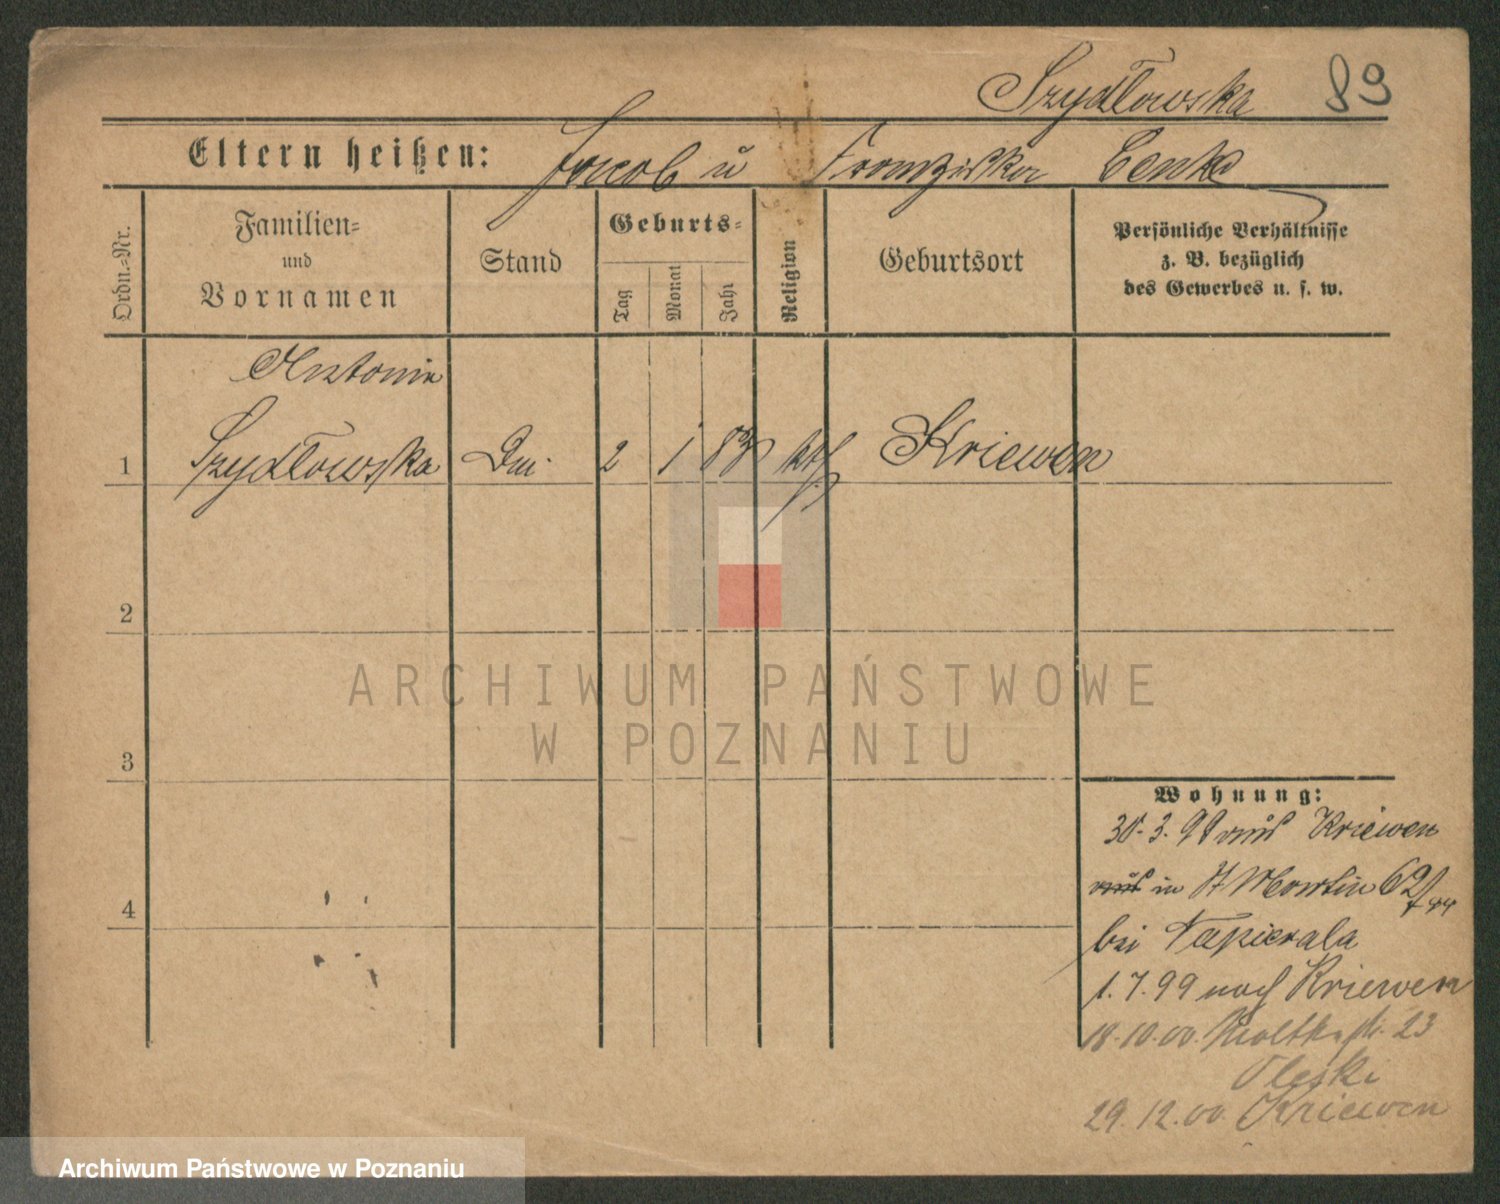 Szydłowska 83
Eltern heißen: Jacob u Franziska Lenka
Ordn.-Nr.
Familien-
und
Vornamen
Stand
Geburts-
Tag
Monat
Jahr
Religion
Geburtsort
Persönliche Verhältnisse
z. B. bezüglich
des Gewerbes u. s. w.
Antonie
1 Szydłowska 2 1 83 kth Kriewen
2
ARCHIWUM PAŃSTWOWE
W POZNANIU
3
Wohnung:
30.3.99 aus Kriewen
aus in St Martin 62
bei Tapierala
1.7.99 nach Kriewen
4
18.10.00 Moltkestr. 23
29.12.00 Kriewen
Archiwum Państwowe w Poznaniu